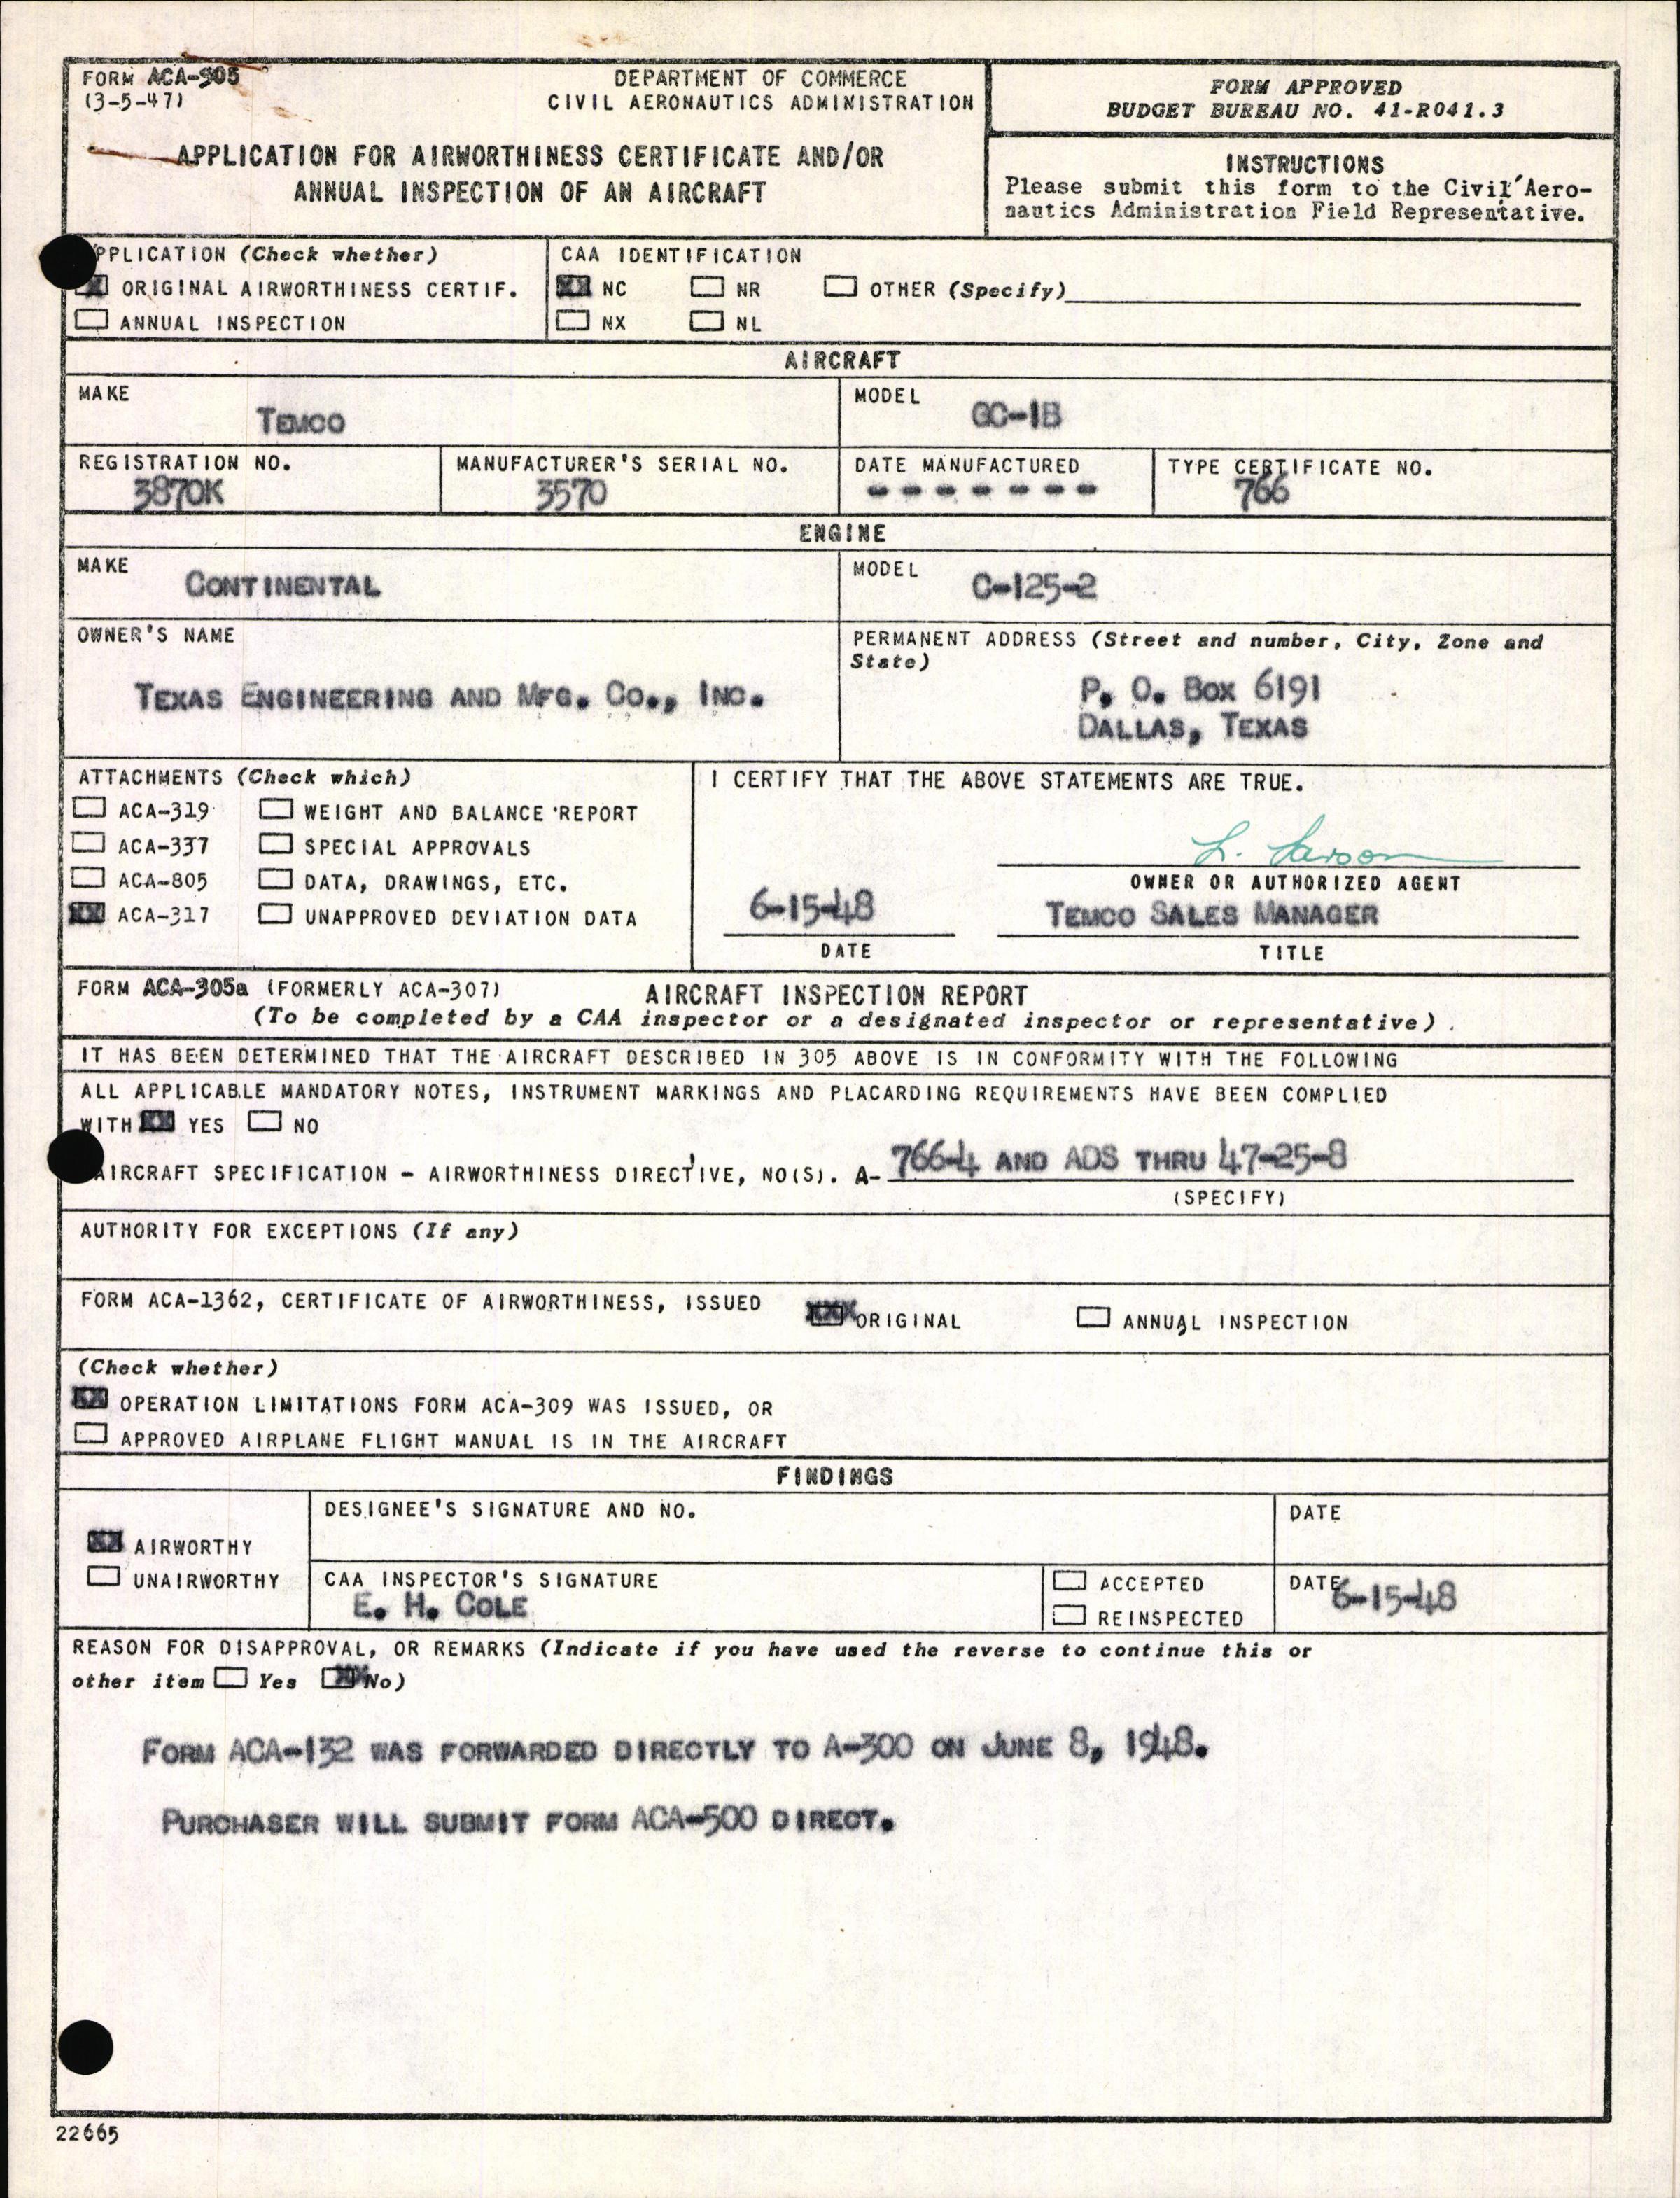 FORM ACA-305
(3-5-47)
DEPARTMENT OF COMMERCE
CIVIL AERONAUTICS ADMINISTRATION
APPLICATION FOR AIRWORTHINESS CERTIFICATE AND/OR
ANNUAL INSPECTION OF AN AIRCRAFT
FORM APPROVED
BUDGET BUREAU NO. 41-R041.3
INSTRUCTIONS
Please submit this form to the Civil Aero-
nautics Administration Field Representative.
PPLICATION (Check whether)
X ORIGINAL AIRWORTHINESS CERTIF.
ANNUAL INSPECTION
CAA IDENTIFICATION
XX NC NR OTHER (Specify)
NX NL
AIRCRAFT
MAKE
TEMCO
MODEL
GC-1B
REGISTRATION NO.
3870K
MANUFACTURER'S SERIAL NO.
3570
DATE MANUFACTURED
- - - - - - -
TYPE CERTIFICATE NO.
766
ENGINE
MAKE
CONTINENTAL
MODEL
C-125-2
OWNER'S NAME
TEXAS ENGINEERING AND MFG. CO., INC.
PERMANENT ADDRESS (Street and number, City, Zone and
State)
P. O. BOX 6191
DALLAS, TEXAS
ATTACHMENTS (Check which)
ACA-319 WEIGHT AND BALANCE REPORT
ACA-337 SPECIAL APPROVALS
ACA-805 DATA, DRAWINGS, ETC.
XX ACA-317 UNAPPROVED DEVIATION DATA
I CERTIFY THAT THE ABOVE STATEMENTS ARE TRUE.
L. Larson
OWNER OR AUTHORIZED AGENT
6-15-48
TEMCO SALES MANAGER
DATE
TITLE
FORM ACA-305a (FORMERLY ACA-307)
AIRCRAFT INSPECTION REPORT
(To be completed by a CAA inspector or a designated inspector or representative).
IT HAS BEEN DETERMINED THAT THE AIRCRAFT DESCRIBED IN 305 ABOVE IS IN CONFORMITY WITH THE FOLLOWING
ALL APPLICABLE MANDATORY NOTES, INSTRUMENT MARKINGS AND PLACARDING REQUIREMENTS HAVE BEEN COMPLIED
WITH XX YES NO
AIRCRAFT SPECIFICATION - AIRWORTHINESS DIRECTIVE, NO(S). A- 766-4 AND ADS THRU 47-25-8
(SPECIFY)
AUTHORITY FOR EXCEPTIONS (If any)
FORM ACA-1362, CERTIFICATE OF AIRWORTHINESS, ISSUED XXX ORIGINAL ANNUAL INSPECTION
(Check whether)
XX OPERATION LIMITATIONS FORM ACA-309 WAS ISSUED, OR
APPROVED AIRPLANE FLIGHT MANUAL IS IN THE AIRCRAFT
FINDINGS
XX AIRWORTHY
UNAIRWORTHY
DESIGNEE'S SIGNATURE AND NO.
DATE
CAA INSPECTOR'S SIGNATURE
E. H. COLE
ACCEPTED
REINSPECTED
DATE 6-15-48
REASON FOR DISAPPROVAL, OR REMARKS (Indicate if you have used the reverse to continue this or
other item Yes XX No)
FORM ACA-132 WAS FORWARDED DIRECTLY TO A-300 ON JUNE 8, 1948.
PURCHASER WILL SUBMIT FORM ACA-500 DIRECT.
22665